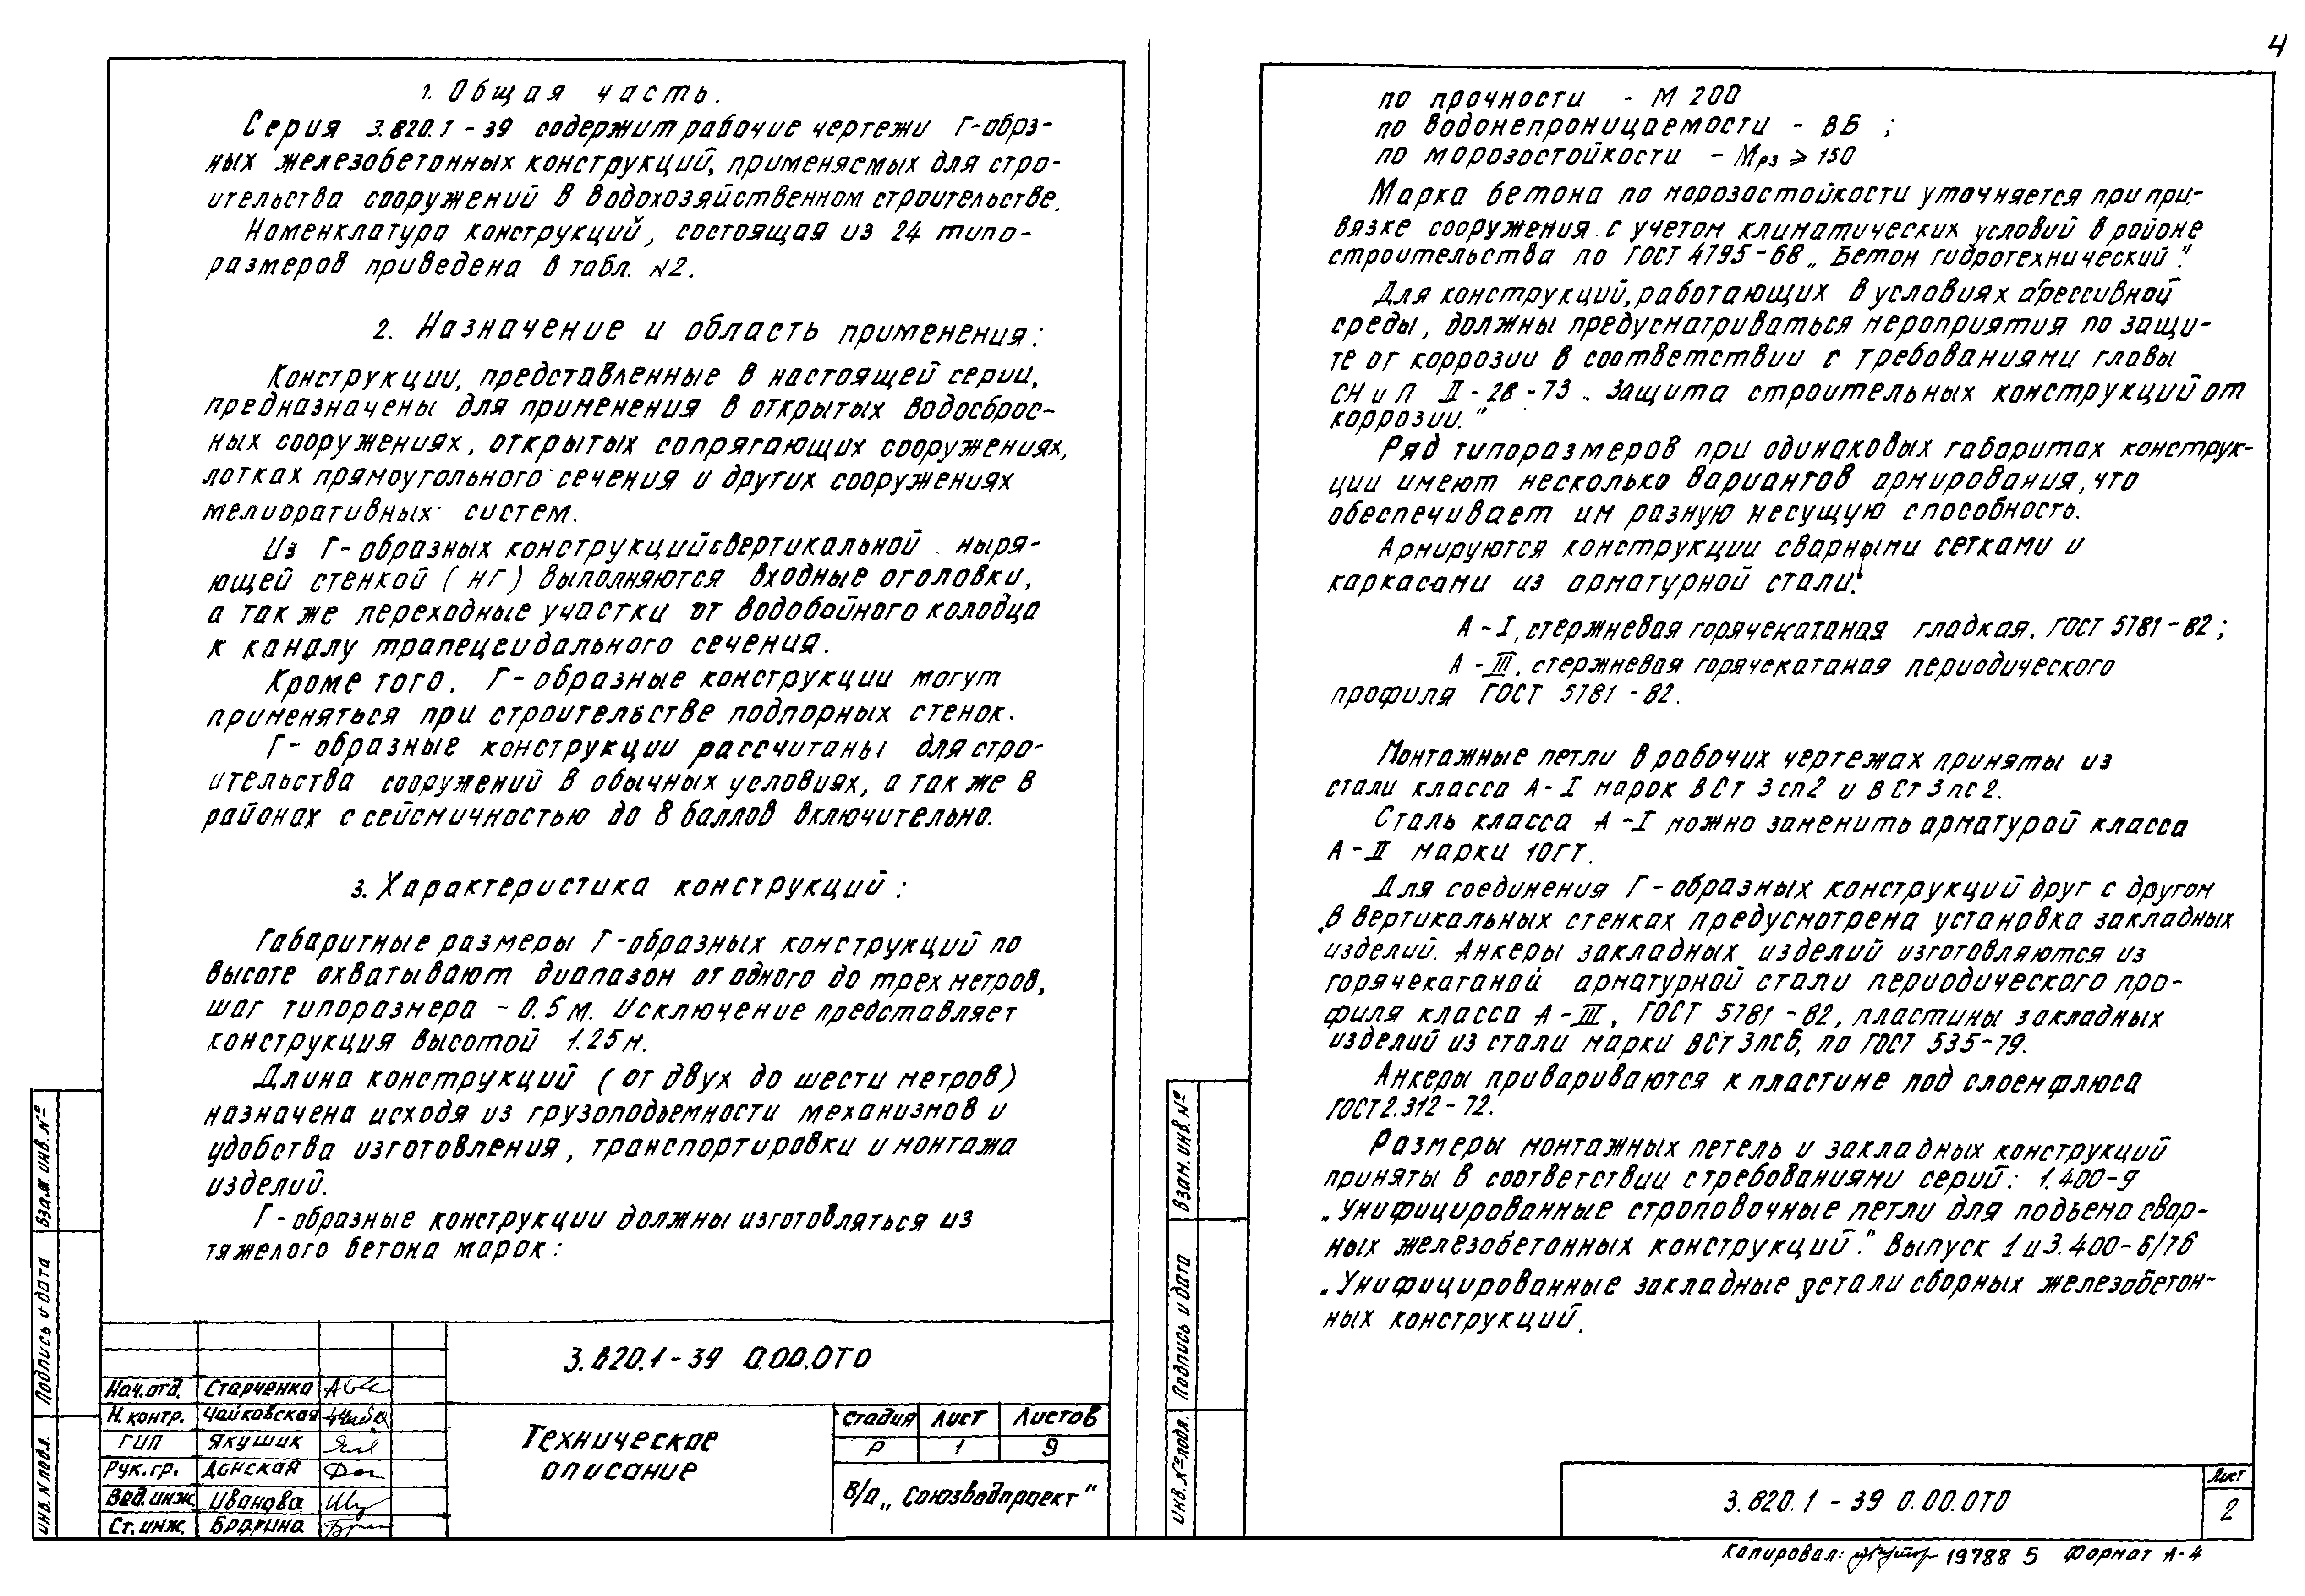 4
1. Общая часть.
Серия 3.820.1-39 содержит рабочие чертежи Г-обрз-
ных железобетонных конструкций, применяемых для стро-
ительства сооружений в водохозяйственном строительстве.
Номенклатура конструкций, состоящая из 24 типо-
размеров приведена в табл. N2.
2. Назначение и область применения:
Конструкции, представленные в настоящей серии,
предназначены для применения в открытых водосброс-
ных сооружениях, открытых сопрягающих сооружениях,
лотках прямоугольного сечения и других сооружениях
мелиоративных систем.
Из Г-образных конструкций с вертикальной ныря-
ющей стенкой (НГ) выполняются входные оголовки,
а так же переходные участки от водобойного колодца
к каналу трапецеидального сечения.
Кроме того, Г-образные конструкции могут
применяться при строительстве подпорных стенок.
Г-образные конструкции рассчитаны для стро-
ительства сооружений в обычных условиях, а так же в
районах с сейсмичностью до 8 баллов включительно.
3. Характеристика конструкций:
Габаритные размеры Г-образных конструкций по
высоте охватывают диапазон от одного до трех метров,
шаг типоразмера - 0.5 м. Исключение представляет
конструкция высотой 1.25 м.
Длина конструкций (от двух до шести метров)
назначена исходя из грузоподъемности механизмов и
удобства изготовления, транспортировки и монтажа
изделий.
Г-образные конструкции должны изготовляться из
тяжелого бетона марок:
3.820.1-39 0.00.0ТО
Нач.отд. Старченко
Н.контр. Чайковская
ГИП Якушик
Рук.гр. Донская
Вед.инж. Иванова
Ст.инж. Брагина
Техническое
описание
стадия Лист Листов
Р 1 9
В/о „Союзводпроект"
Взам.инв.№
Подпись и дата
инв.N подл.
по прочности - М 200
по водонепроницаемости - В6;
по морозостойкости - Мрз ≥ 150
Марка бетона по морозостойкости уточняется при при-
вязке сооружения с учетом климатических условий в районе
строительства по ГОСТ 4795-68 „Бетон гидротехнический".
Для конструкций, работающих в условиях агрессивной
среды, должны предусматриваться мероприятия по защи-
те от коррозии в соответствии с требованиями главы
СНиП II-28-73 „Защита строительных конструкций от
коррозии."
Ряд типоразмеров при одинаковых габаритах конструк-
ции имеют несколько вариантов армирования, что
обеспечивает им разную несущую способность.
Армируются конструкции сварными сетками и
каркасами из арматурной стали:
А-I, стержневая горячекатаная гладкая. ГОСТ 5781-82;
А-III, стержневая горячекатаная периодического
профиля ГОСТ 5781-82.
Монтажные петли в рабочих чертежах приняты из
стали класса А-I марок ВСт 3сп2 и ВСт3пс2.
Сталь класса А-I можно заменить арматурой класса
А-II марки 10ГТ.
Для соединения Г-образных конструкций друг с другом
в вертикальных стенках предусмотрена установка закладных
изделий. Анкеры закладных изделий изготовляются из
горячекатаной арматурной стали периодического про-
филя класса А-III, ГОСТ 5781-82, пластины закладных
изделий из стали марки ВСт3пс6, по ГОСТ 535-79.
Анкеры привариваются к пластине под слоем флюса
ГОСТ 2.312-72.
Размеры монтажных петель и закладных конструкций
приняты в соответствии с требованиями серий: 1.400-9
„Унифицированные строповочные петли для подъема свар-
ных железобетонных конструкций." Выпуск 1 и 3.400-6/76
„Унифицированные закладные детали сборных железобетон-
ных конструкций.
Взам.инв.№
Подпись и дата
инв.№ подл.
3.820.1-39 0.00.0ТО
Лист
2
Копировал: 19788 5 Формат А-4